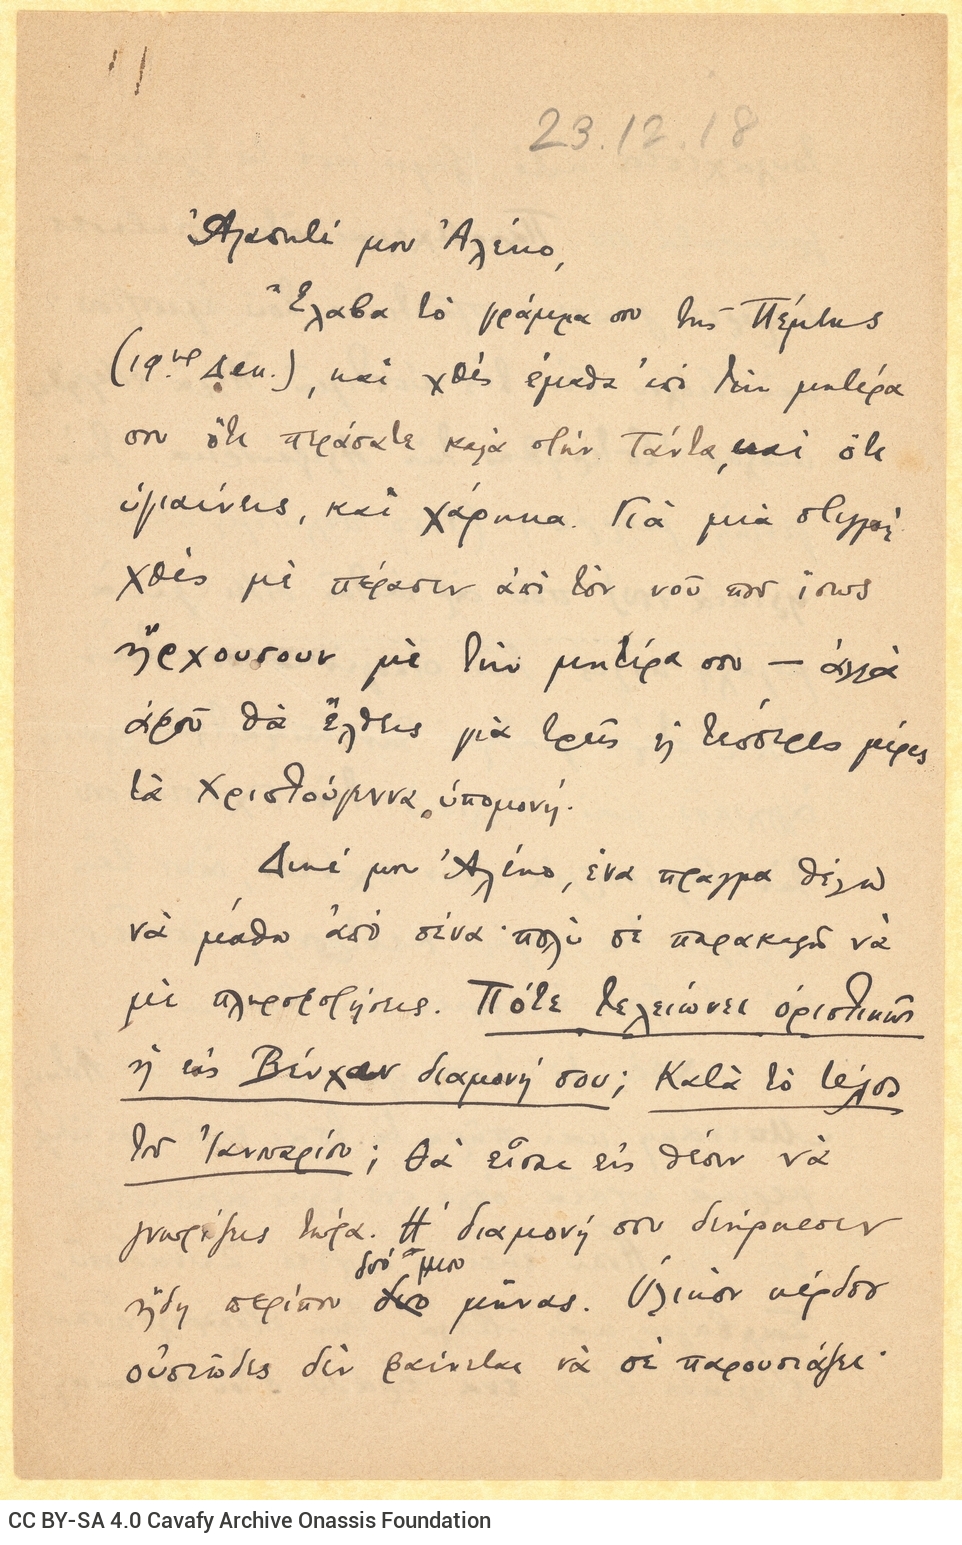 11
23.12.18
Ἀγαπητέ μου Ἀλέκο,
Ἔλαβα τὸ γράμμα σου τῆς Πέμπτης
(19ην Δεκ.), καὶ χθὲς ἔμαθα ἀπὸ τὴν μητέρα
σου ὅτι περάσατε καλὰ στὴν Τάντα, καὶ ὅτι
ὑγιαίνεις, καὶ χάρηκα. Γιὰ μιὰ στιγμὴ
χθὲς μὲ πέρασεν ἀπὸ τὸν νοῦ ποῦ ἴσως
ἤρχουσουν μὲ τὴν μητέρα σου — ἀλλὰ
ἀφοῦ θὰ ἔλθεις γιὰ τρεῖς ἢ τέσσερες μέρες
τὰ Χριστούγεννα, ὑπομονή.
Δικέ μου Ἀλέκο, ἕνα πραγμα θέλω
νὰ μάθω ἀπὸ σένα· πολὺ σὲ παρακαλῶ νὰ
μὲ πληροφορήσεις. Πότε τελειώνει ὁριστικῶς
ἡ εἰς Βένχαν διαμονή σου; Κατὰ τὸ τέλος
τοῦ Ἰανουαρίου; Θὰ εἶσαι εἰς θέσιν νὰ
γνωρίζεις τώρα. Ἡ διαμονή σου διήρκεσεν
δυό ἥμισυ
ἤδη περίπου δυο μῆνας. Ὑλικὸν κέρδος
οὐσιῶδες δὲν φαίνεται νὰ σὲ παρουσιάζει·
CC BY-SA 4.0 Cavafy Archive Onassis Foundation